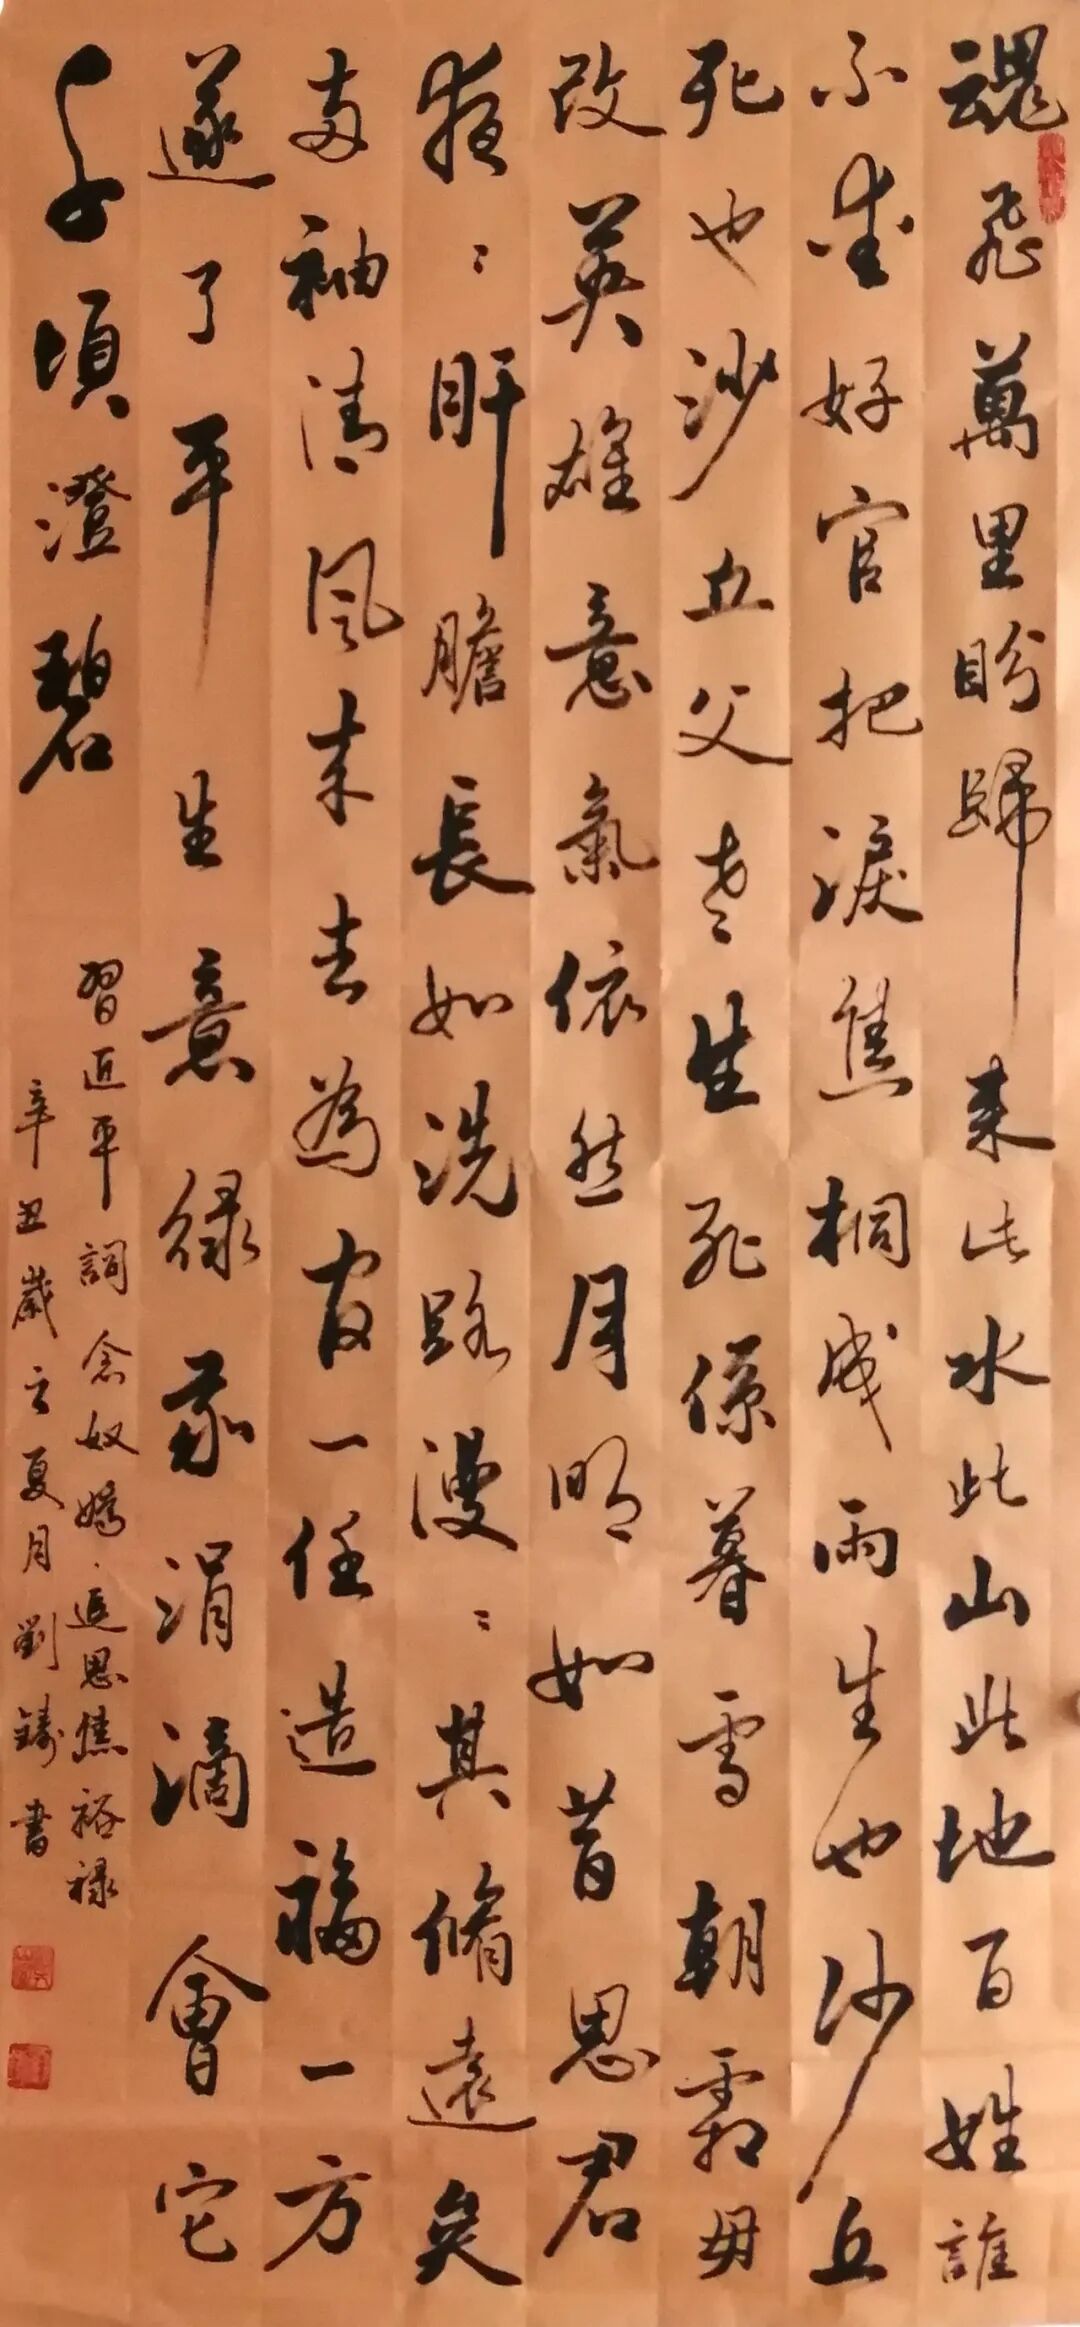 魂飛萬里盼歸來此水此山此地百姓誰
不愛好官把淚焦桐成雨生也沙丘
死也沙丘父老生死係暮雪朝霜毋
改英雄意氣依然月明如昔思君
夜〻肝膽長如洗路漫〻其脩遠矣
兩袖清風來去為官一任造福一方
遂了平生意綠我涓滴會它
千頃澄碧
習近平詞念奴嬌·追思焦裕祿
辛丑歲之夏月劉鑄書